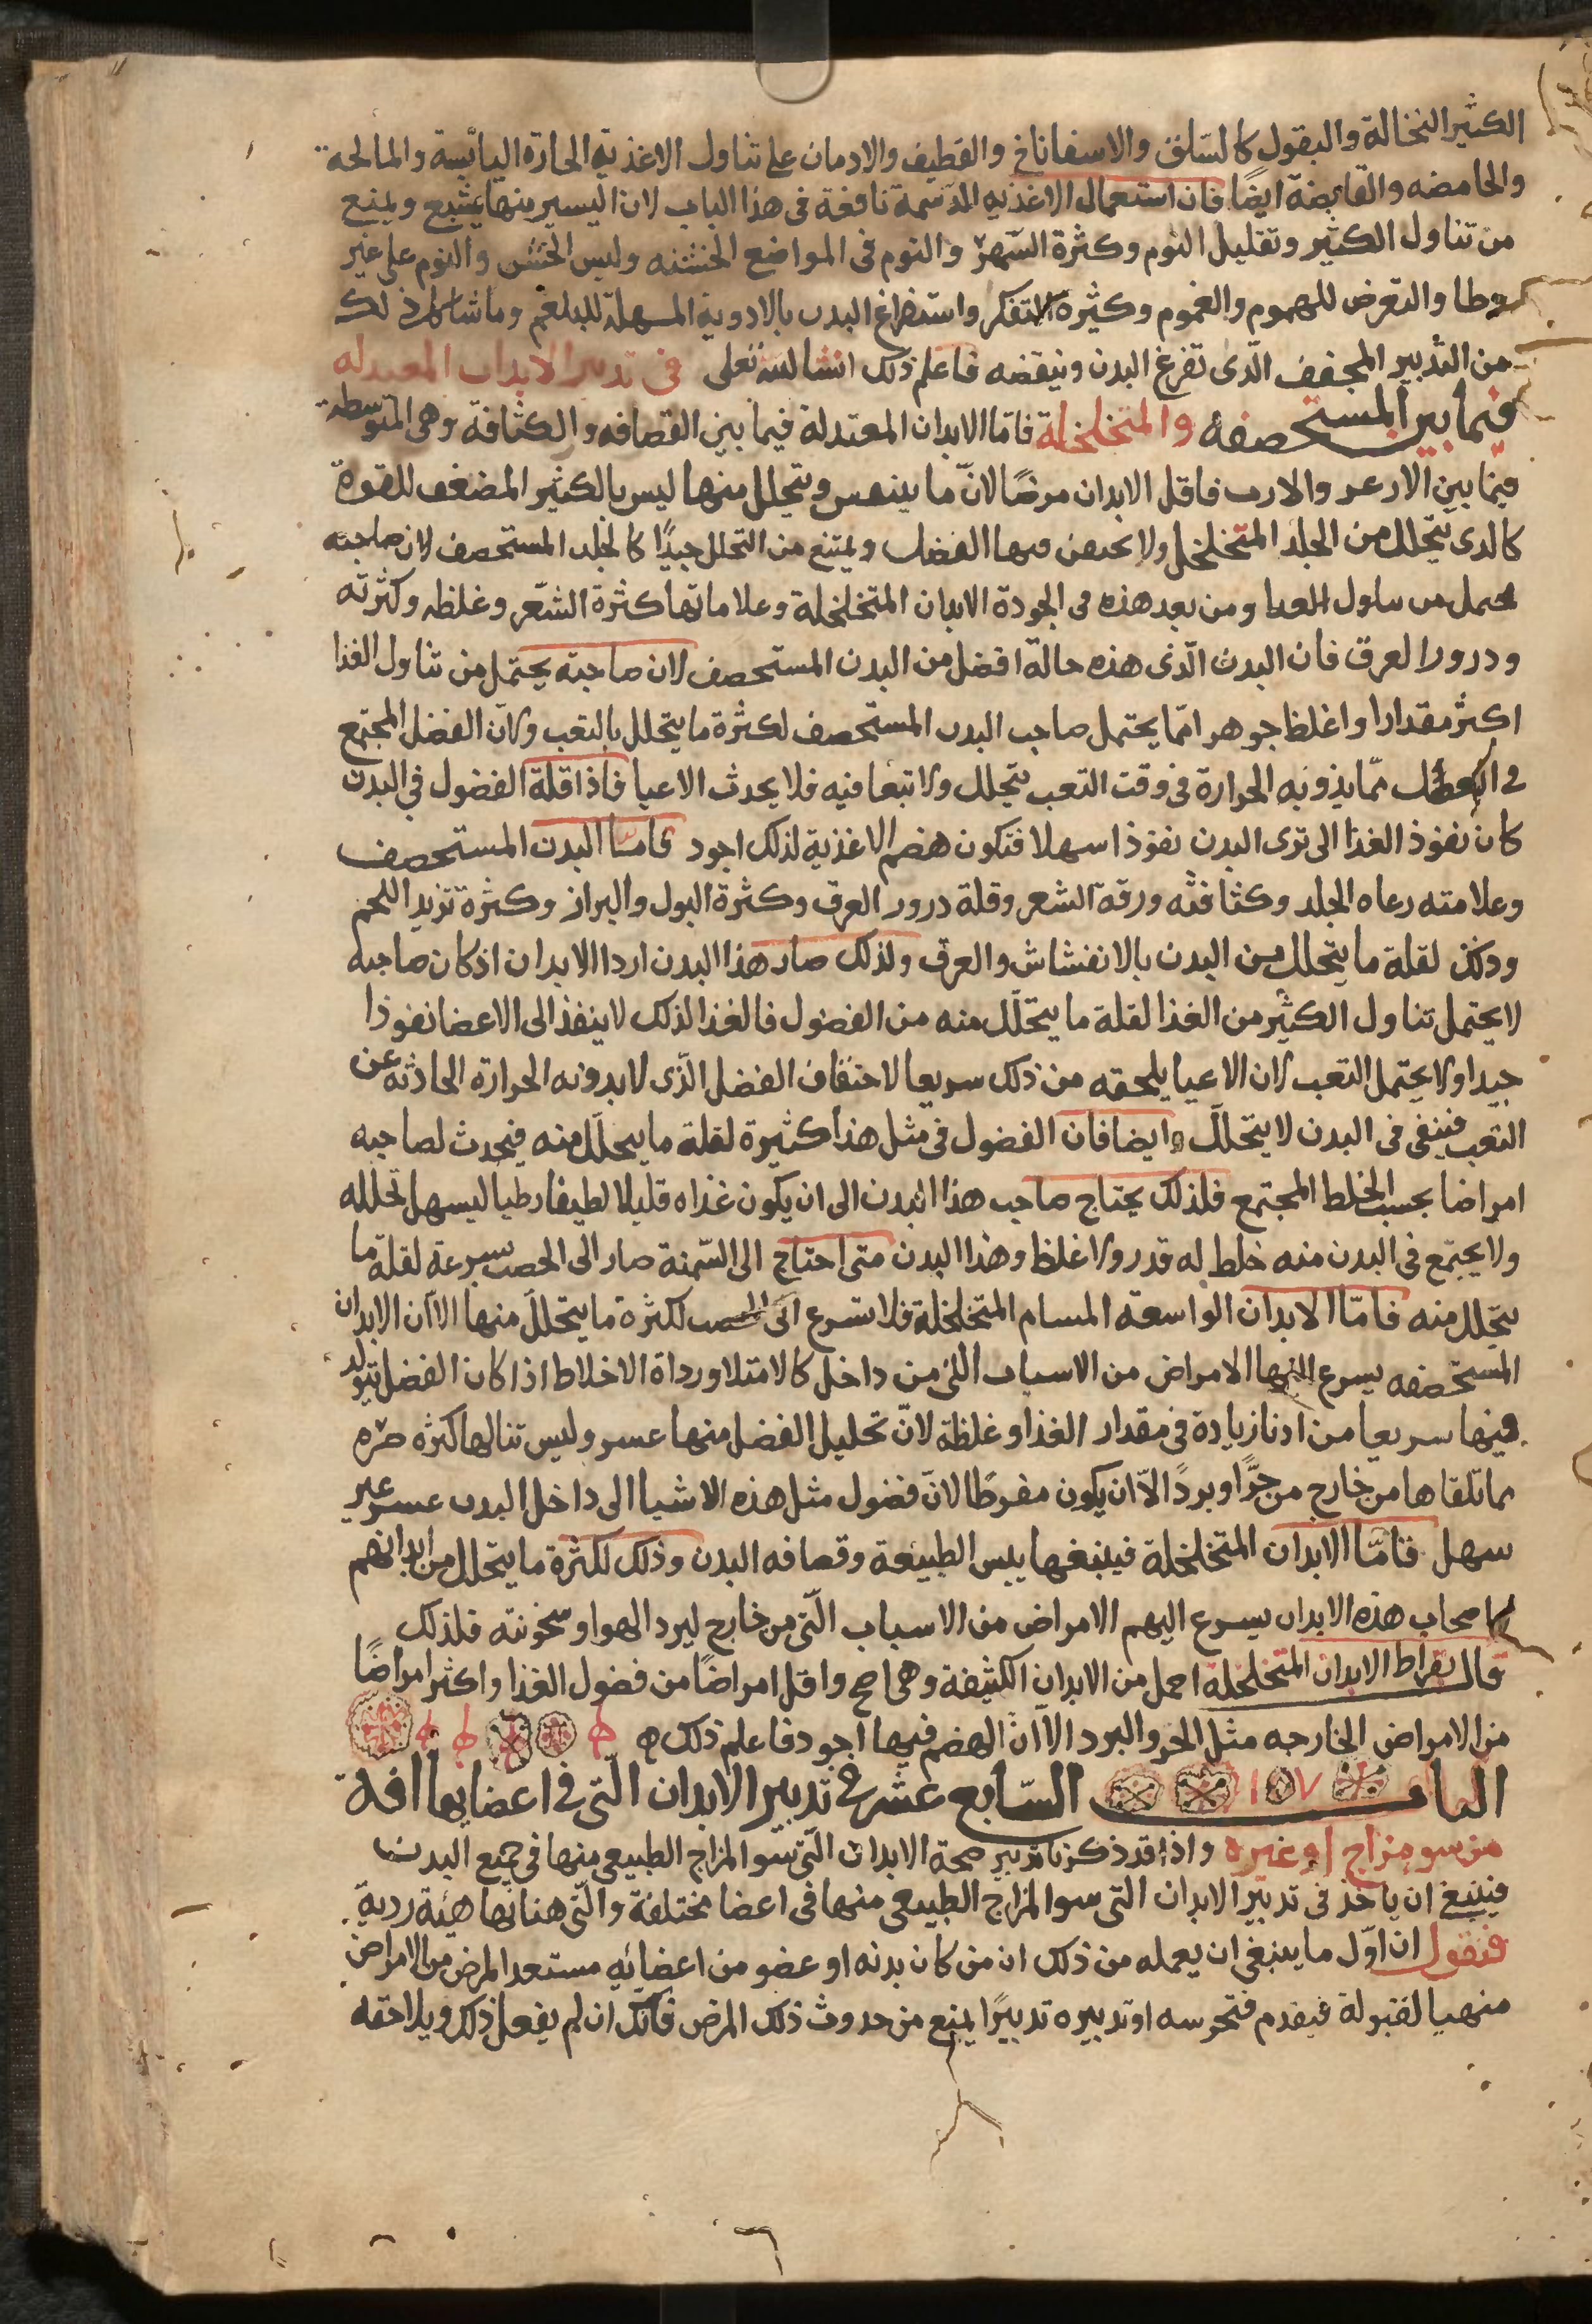 الكثير النخالة والبقول كالسلق والاسفاناخ والقطيف والادمان على تناول الاغذية الحارة اليابسة والمالحة
والحامضه والقابضة ايضًا فان استعمال الاغذيه الدسمة نافعة فى هذا الباب لان اليسير منها يشبع ويمنع
من تناول الكثير وتقليل النوم وكثرة السهر والنوم فى المواضع الخشنه ولبس الخشن والنوم على غير
وطا والتعرض للهموم والغموم وكثيرة التفكر واستفراغ البدن بالادوية المسهلة للبلغم وما شاكل ذلك
من التدبير المجفف الّذى تفرغ البدن وينقصه فاعلم ذلك انشا لله تعلى فى تدبير الابدان المعتدله
فيما بين المستحصفه والمتخلخلة فامّا الابدان المعتدلة فيما بين القصافه والكثافة وهى المتوسطة
فيما بين الازعر والازب فاقل الابدان مرضًا لانّ ما ينفس ويتحلل منها ليس بالكثير المضعف للقوة
كالذى يتحلل من الجلد المتخلخل ولا يحقن فيها الفضل ويمتنع من التحلل جيدًا كالجلد المستحصف لان صاحبه
يحتمل من تناول الغدا ومن بعد هذه فى الجودة الابدان المتخلخلة وعلاماتها كثرة الشّعر وغلظه وكثرته
ودرور العرق فان البدن الّذى هذه حالة افضل من البدن المستحصف لان صاحبه يحتمل من تناول الغذا
اكثر مقدارا واغلظ جوهر امّا يحتمل صاحب البدن المستحصف لكثرة ما يتحلل بالتعب ولانّ الفضل المجتمع
فى العضل ممّا يذوبه الحرارة فى وقت التعب يتحلل ولا تبعا فيه فلا يحدث الاعيا فاذا قلة الفضول فى البدن
كان نفوذ الغذا الى ترى البدن نفوذا سهلا فتكون هضم الاغذية لذلك اجود فامّا البدن المستحصف
وعلامته رعاه الجلد وكثافته ورقة الشعر وقلة درور العرق وكثرة البول والبراز وكثرة تزيد اللحم
وذلك لقلة ما يتحلل من البدن بالانفشاش والعرق ولذلك صار هذا البدن اردا الابدان اذ كان صاحبه
لا يحتمل تناول الكثير من الغذا لقلة ما يتحلّل منه من الفضول فالغذا لذلك لا ينفذ الى الاعضا نفوذا
جيدا ولا يحتمل التعب لان الاعيا يلحقه من ذلك سريعا لاحتقان الفضل الّذى لا بدونه الحرارة الحادثه عن
التعب فيبقى فى البدن لا يتحلّل وايضا فان الفضول فى مثل هذا كثيرة لقلة ما يحلّل منه فيحدث لصاحبه
امراضا بحسب الخلط المجتمع فلذلك يحتاج صاحب هذا البدن الى ان يكون غذاه قليلا لطيفا رطبا ليسهل تحلله
ولا يجتمع فى البدن منه خلط له قدر ولا غلظ وهذا البدن متى احتاج الى السّمنة صار الى الخصب بسرعة لقلة ما
يتحلل منه فامّا الابدان الواسعة المسام المتخلخلة فلا تسرع الى الخصب لكثرة ما يتحلل منها الا ان الابدان
المستحصفه يسرع اليها الامراض من الاسباب اللى من داخل كالامتلا ورداة الاخلاط اذا كان الفضل يتولد
فيها سريعا من ادنا زيادة فى مقدار الغذا وغلظة لانّ تحليل الفضل منها عسر وليس تنالها كثره ضره
بما تلقاها من خارج من حرًّ او بردً الاّ ان يكون مفرطًا لانّ فضول مثل هذه الاشيا الى داخل البدن عسر غير
سهل فامّا الابدان المتخلخلة فيتبعها يبس الطبيعة وقصافه البدن وذلك لكثرة ما يتحلل من ابدانهم
كاصحاب هذه الابدان يسرع اليهم الامراض من الاسباب الّتى من خارج لبرد الهوا وسخونته فلذلك
قال بقراط الابدان المتخلخلة احمل من الابدان الكثيفة وهى اصح واقل امراضًا من فضول الغذا واكثر امراضًا
من الامراض الخارجه مثل الحر والبرد الاّ انّ الهضم فيها اجود فاعلم ذلك
الباب السّابع عشر فى تدبير الابدان الّتى فى اعضايها افة
من سو مزاج او غيره واذا قد ذكرنا تدبير صحة الابدان الّتى سو المزاج الطبيعى منها فى جميع البدن
فينبغ ان ياخذ فى تدبير الابدان التى سو المزاج الطبيعى منها فى اعضا مختلفة والّتى هناتها هيئة ردية
فنقول ان اوّل ما ينبغى ان يعمله من ذلك ان من كان بدنه او عضو من اعضايه مستعد المرض من الامراض
منهيا لقبولة فيقدم فتحرسه او تدبيره تدبيرًا يمنع من حدوث ذلك المرض فانّك ان لم يفعل ذلك ويلاحقه